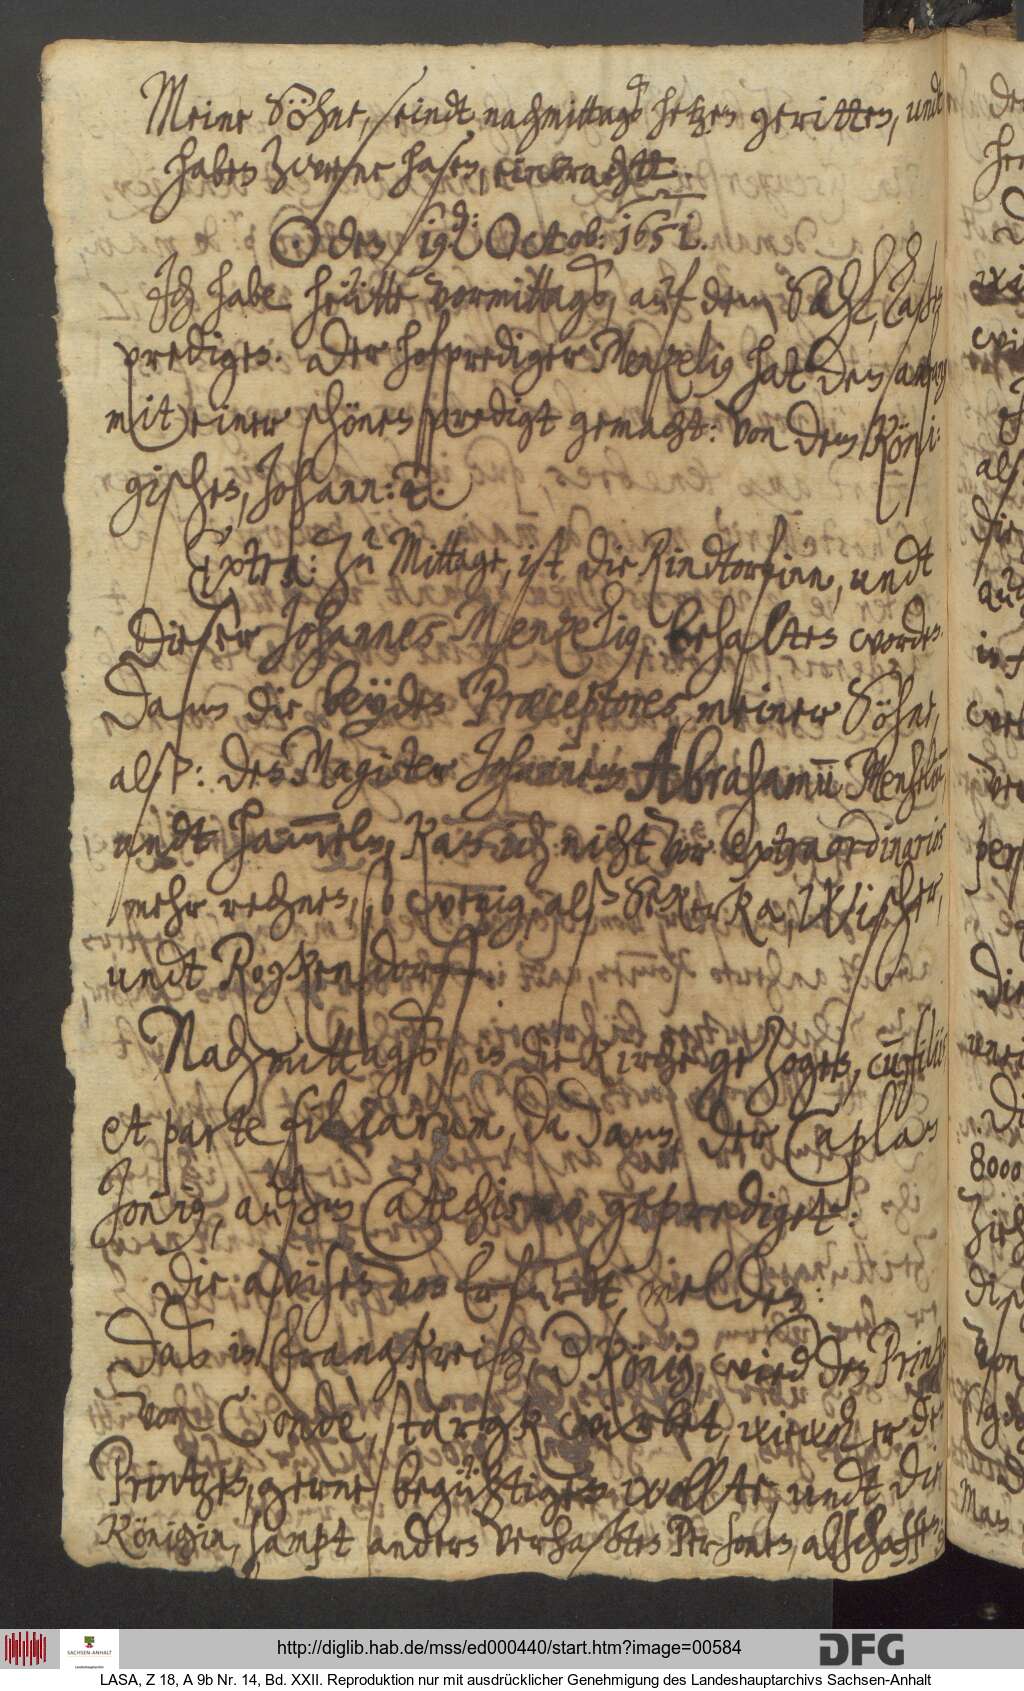 Meine Söhne, seindt nachmittags hetzen geritten, undt
haben zweene hasen, einbrachtt.
☉ den 19d: Octob: 1651.
Ich habe heütte vormittags, auf dem Sahl, laßen
predigen. Der hofprediger Menzelius hat den anfang
mit einer schönen predigt gemacht: Von dem Köni-
gischen, Johann: 4.
Extra: Zu Mittage, ist die Rindtorfinn, undt
dieser Johannes Menzelius, behalten worden.
Dann die beyden Præceptores, meiner Söhne,
alß: den Magister Abrahamum Menzelium
undt hammeln, kan ich nicht vor extraordinarios
mehr rechnen, so wenig alß Secker ka, Wischer,
undt Rogkendorff
Nachmittagß, in die Kirche gezogen, cum filiis
et parte filiarum, da dann, der Caplan
Jonius, außm Catechismo geprediget.
Die avisen von Erfurdt melden:
Das in Frangkreich, der König, wied den Printz
von Condè, stargk wirbet, wiewol er den
Printzen, gerne begütigen wollte, undt die
Königin, sampt andern verhaßten Personen, abschaffen:
den
http://diglib.hab.de/mss/ed000440/start.htm?image=00584
SACHSEN-ANHALT
Landeshauptarchiv
DFG
LASA, Z 18, A 9b Nr. 14, Bd. XXII. Reproduktion nur mit ausdrücklicher Genehmigung des Landeshauptarchivs Sachsen-Anhalt